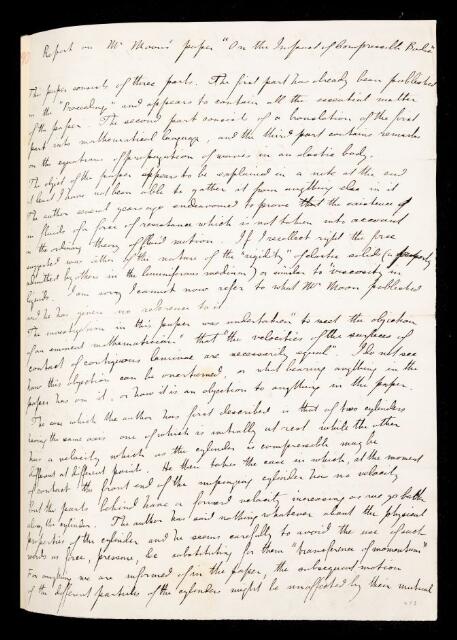 Report on Mr Moon's paper "On the Impact of Compressible Bodies"
The paper consists of three parts. The first part has already been published
in the "Proceedings" and appears to contain all the essential matter
of the paper. The second part consists of a translation of the first
part into mathematical language, and the third part contains remarks
on the equations of propagation of waves in an elastic body.
The object of the paper appears to be explained in a note at the end
at least I have not been able to gather it from anything else in it
The author several years ago endeavoured to prove that the existence of
in fluids of a force of resistance which is not taken into account
in the ordinary theory of fluid motion. If I recollect right the force
suggested was either of the nature of the "rigidity" of elastic solids (a property
admitted by others in the luminiferous medium) or similar to "viscosity" in
liquids. I am sorry I cannot now refer to what Mr Moon published
and he has given no reference to it
The investigation in this paper was undertaken "to meet the objection
of an eminent mathematician" that "the velocities of the surfaces of
contact of contiguous laminae are necessarily equal". I do not see
how this objection can be overturned, or what bearing anything in the
paper has on it, or how it is an objection to anything in the paper.
The case which the author has first described is that of two cylinders
having the same axis one of which is initially at rest while the other
has a velocity which as the cylinder is compressible may be
different at different points. He then takes the case in which, at the moment
of contact the front end of the impinging cylinder has no velocity
but the parts behind have a forward velocity increasing as we go back
along the cylinder. The author has said nothing whatever about the physical
properties of the cylinder and he seems carefully to avoid the use of such
words as force, pressure, &c substituting for them "transference of momentum"
For anything we are informed of in the paper, the subsequent motion
of the different particles of the cylinders might be unaffected by their mutual